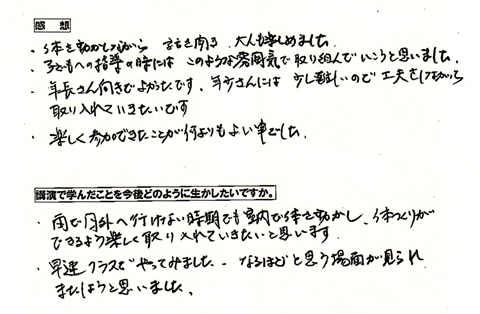 感想
・体を動かしながら 話を聞る 大人も楽しめました。
・子どもへの指導の時には このような雰囲気で取り組んでいこうと思いました。
・年長さん向きでよかったです。年少さんには 少し難しいので工夫をしながら
取り入れていきたいです
・楽しく参加できたことが何よりもよい事でした。
講演で学んだことを今後どのように生かしたいですか。
・雨で園外へ行けない時期でも室内で体を動かし、体づくりが
できるよう楽しく取り入れていきたいと思います。
・早速クラスでやってみました。なるほどと思う場面が見られ
またやろうと思いました。